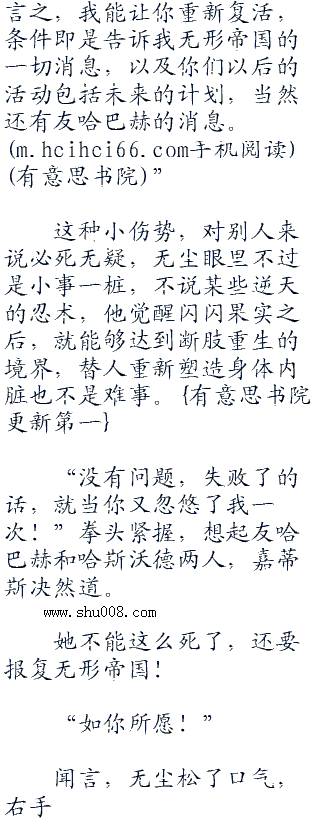 言之，我能让你重新复活，
条件即是告诉我无形帝国的
一切消息，以及你们以后的
活动包括未来的计划，当然
还有友哈巴赫的消息。
(m.hcihci66.com手机阅读)
(有意思书院)”
这种小伤势，对别人来
说必死无疑，无尘眼里不过
是小事一桩，不说某些逆天
的忍术，他觉醒闪闪果实之
后，就能够达到断肢重生的
境界，替人重新塑造身体内
脏也不是难事。{有意思书院
更新第一}
“没有问题，失败了的
话，就当你又忽悠了我一
次！”拳头紧握，想起友哈
巴赫和哈斯沃德两人，嘉蒂
斯决然道。
www.shu008.com
她不能这么死了，还要
报复无形帝国！
“如你所愿！”
闻言，无尘松了口气，
右手